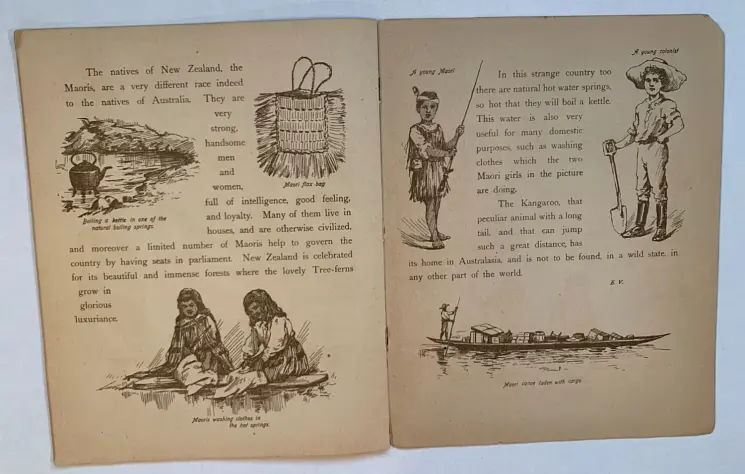 The natives of New Zealand, the
Maoris, are a very different race indeed
to the natives of Australia. They are
very
strong,
handsome
men
and
women,
full of intelligence, good feeling,
and loyalty. Many of them live in
houses, and are otherwise civilized,
and moreover a limited number of Maoris help to govern the
country by having seats in parliament. New Zealand is celebrated
for its beautiful and immense forests where the lovely Tree-ferns
grow in
glorious
luxuriance.
Maori flax bag
Boiling a kettle in one of the
natural boiling springs.
Maoris washing clothes in
the hot springs.
A young Maori
A young colonist
In this strange country too
there are natural hot water springs,
so hot that they will boil a kettle.
This water is also very
useful for many domestic
purposes, such as washing
clothes which the two
Maori girls in the picture
are doing.
The Kangaroo, that
peculiar animal with a long
tail, and that can jump
such a great distance, has
its home in Australasia, and is not to be found, in a wild state, in
any other part of the world.
E. V.
Maori canoe laden with cargo